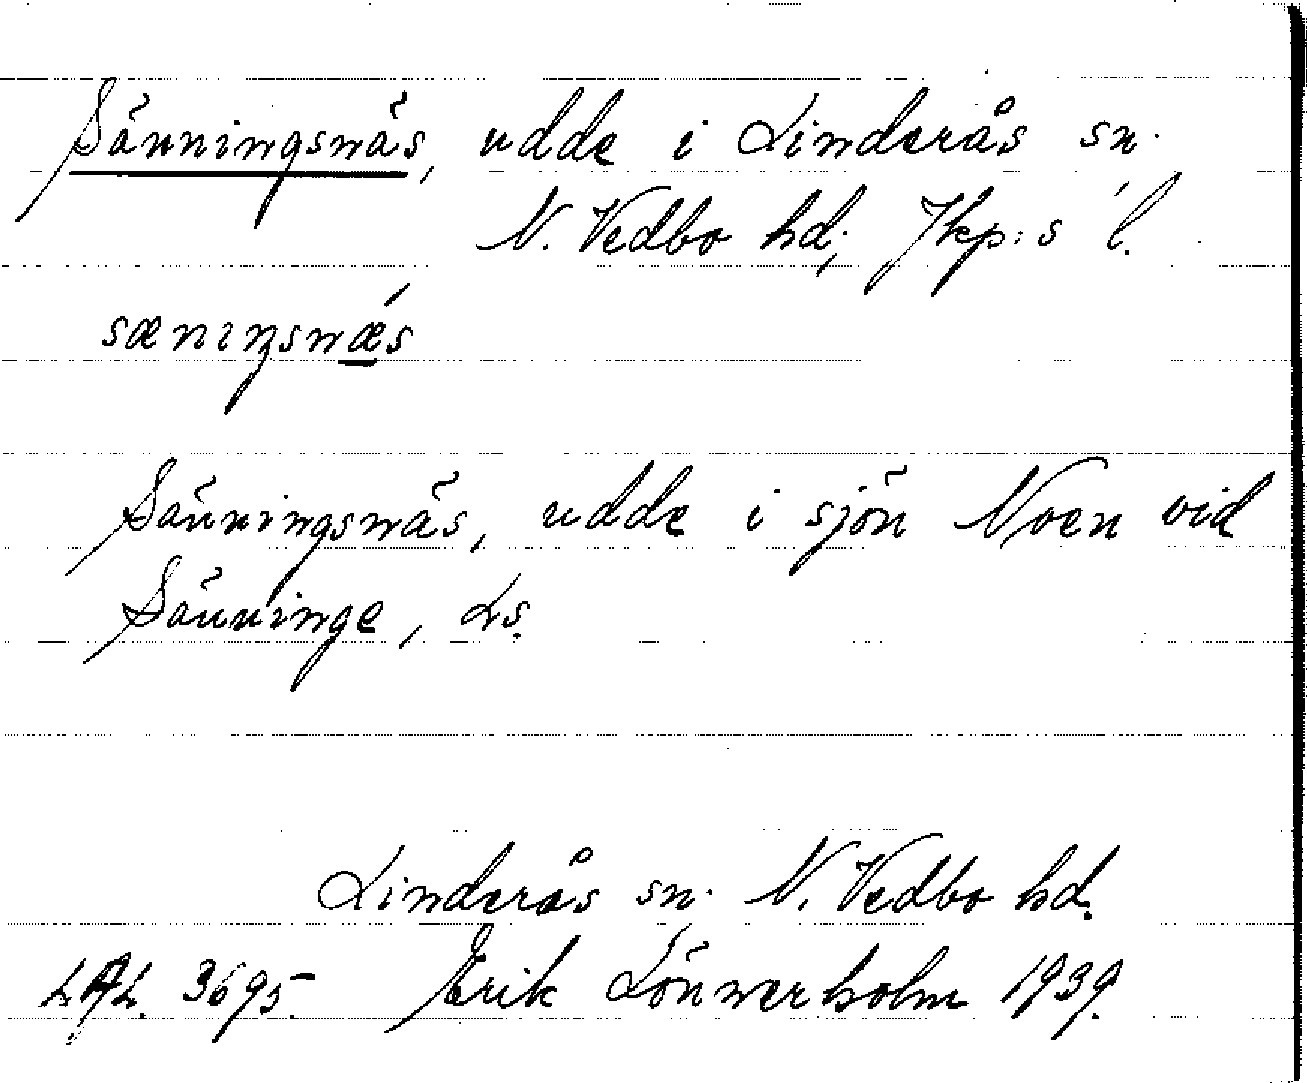 Sänningsnäs, udde i Linderås sn.
N. Vedbo hd, Jkp:s l.
sæniŋsnǽs
Sänningsnäs, udde i sjön Noen vid
Sänninge, Ls.
Linderås sn. N. Vedbo hd.
LAL. 3695. Erik Lönnerholm 1939.